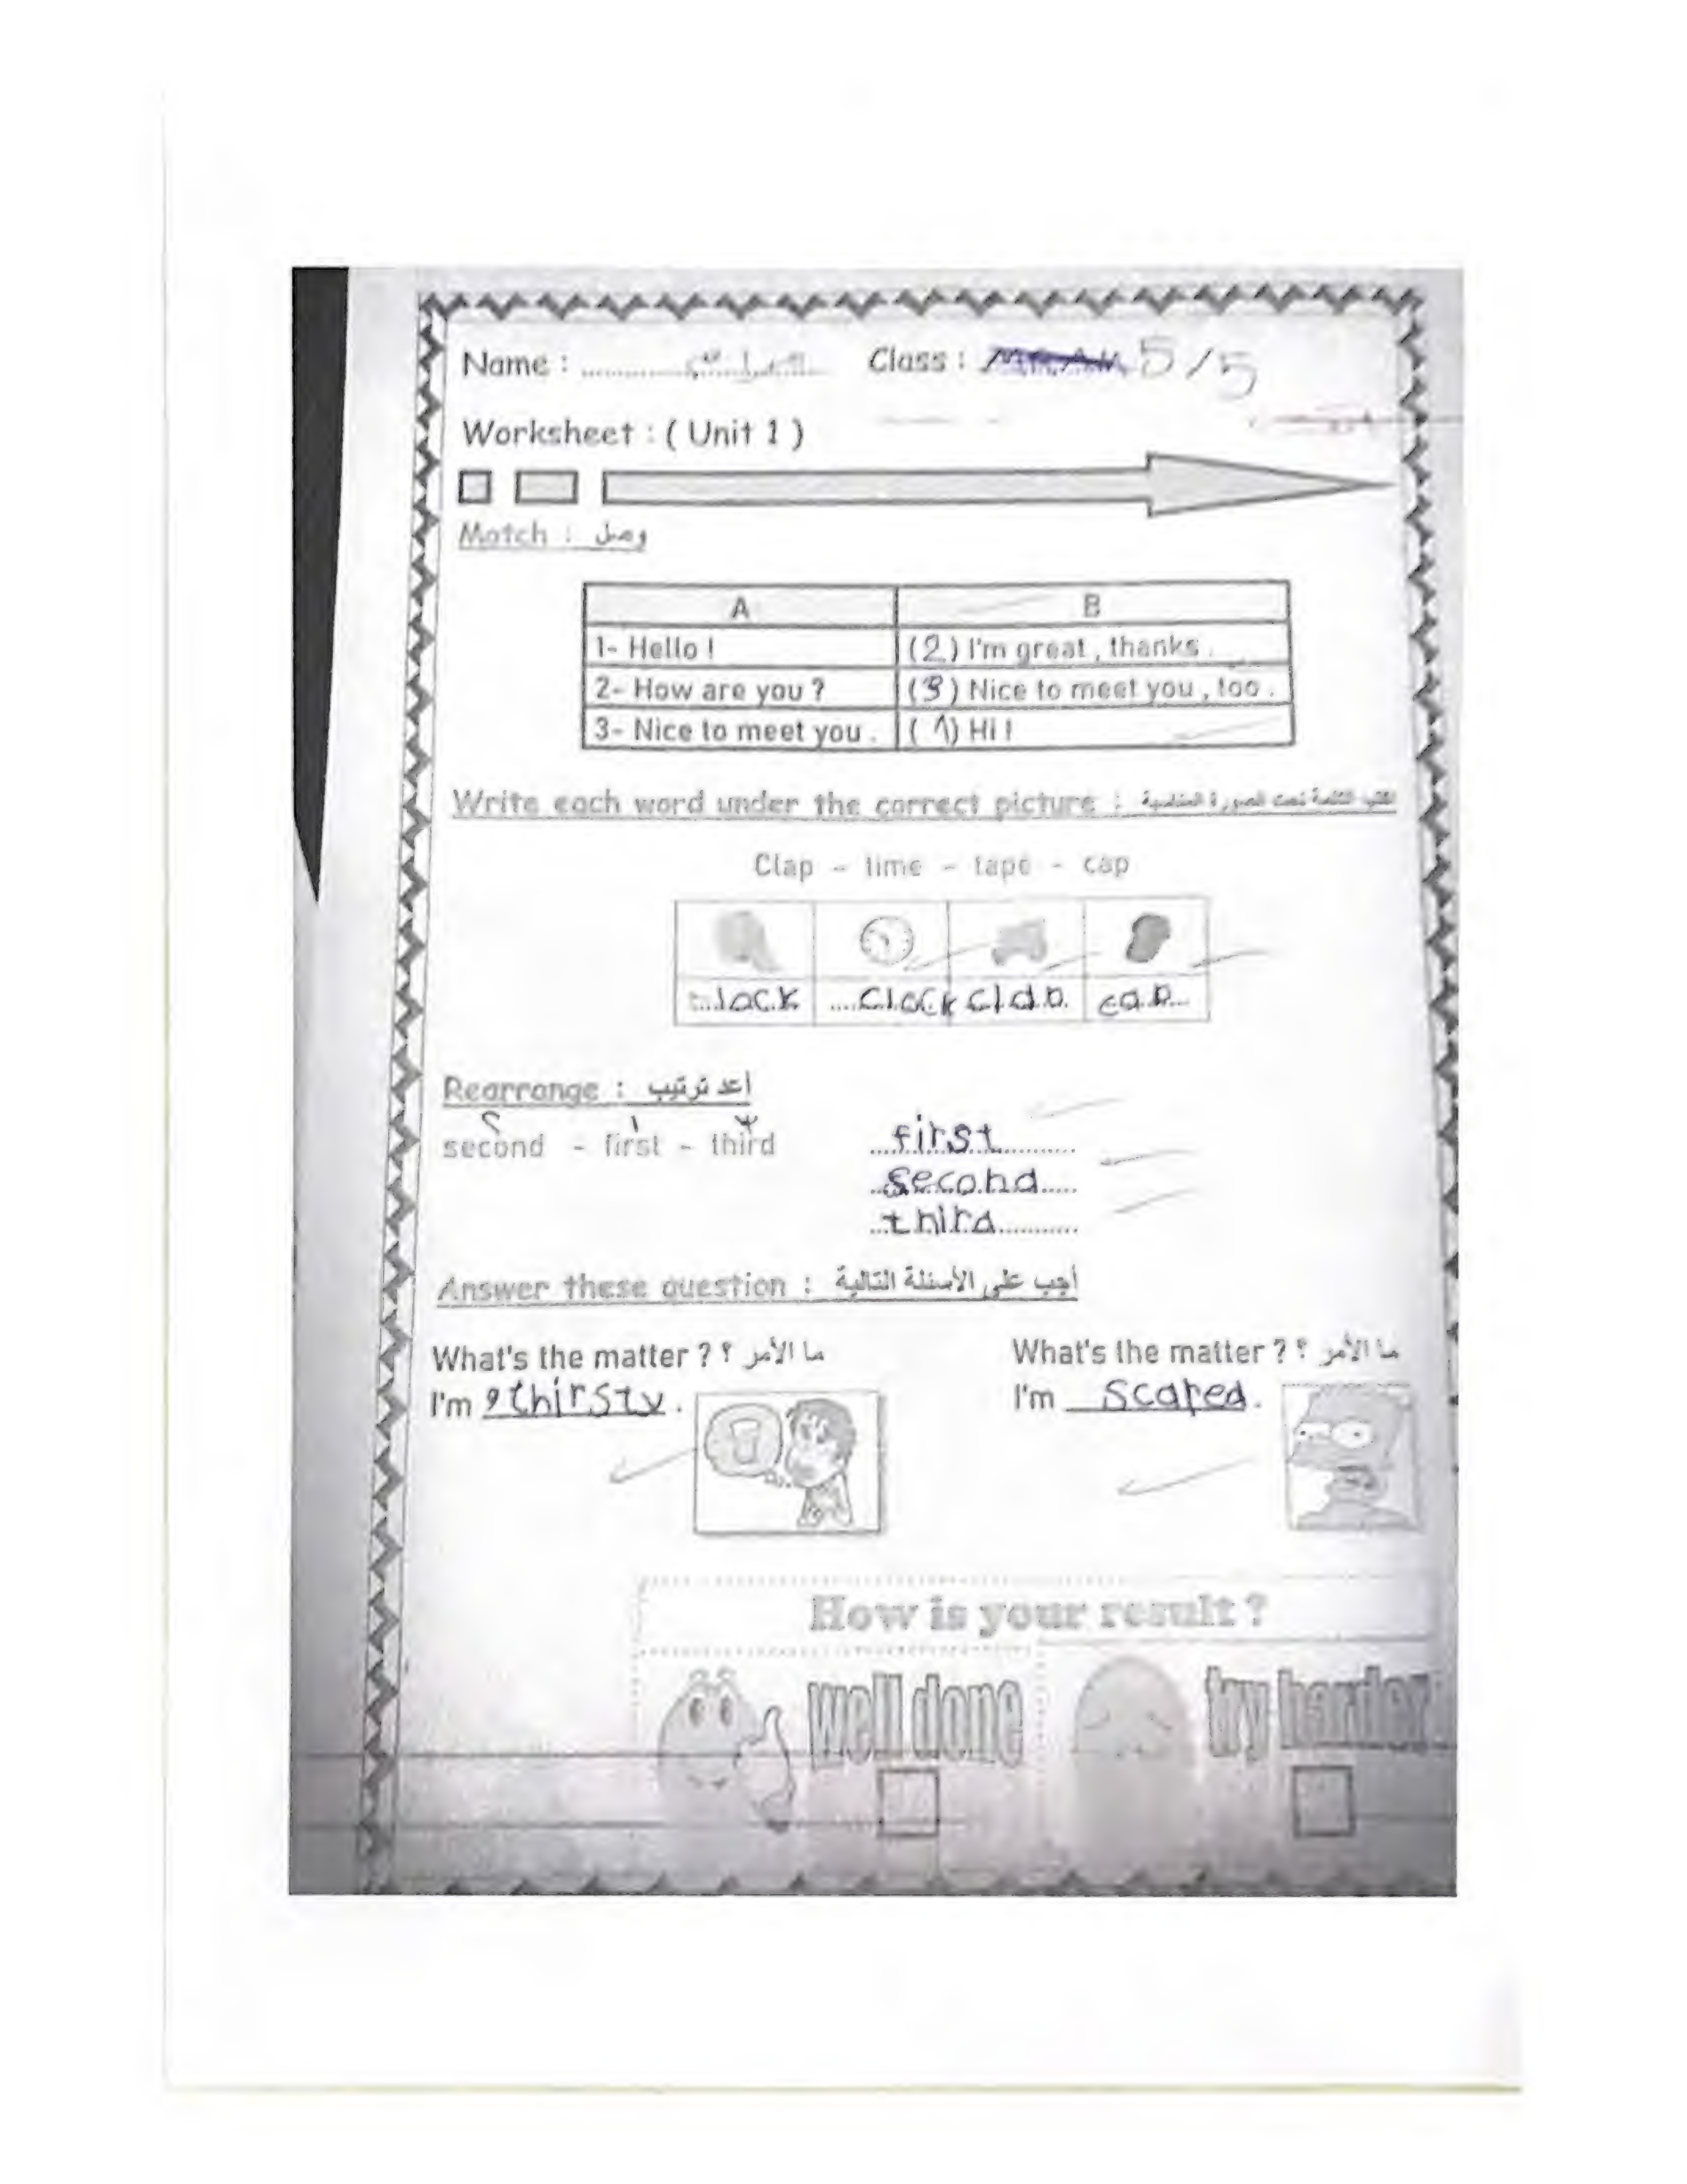 Name : Class : 5/5
Worksheet : ( Unit 1 )
Match : وصل
A B
1- Hello ! (2) I'm great , thanks .
2- How are you ? (3) Nice to meet you , too .
3- Nice to meet you . (1) Hi !
Write each word under the correct picture : اكتب الكلمة تحت الصورة المناسبة
Clap - time - tape - cap
lack clack clap cap
Rearrange : أعد ترتيب
second - first - third first
second
third
Answer these question : أجب على الأسئلة التالية
What's the matter ? ما الأمر ؟ What's the matter ? ما الأمر ؟
I'm thirsty . I'm scared .
How is your result ?
well done try harder